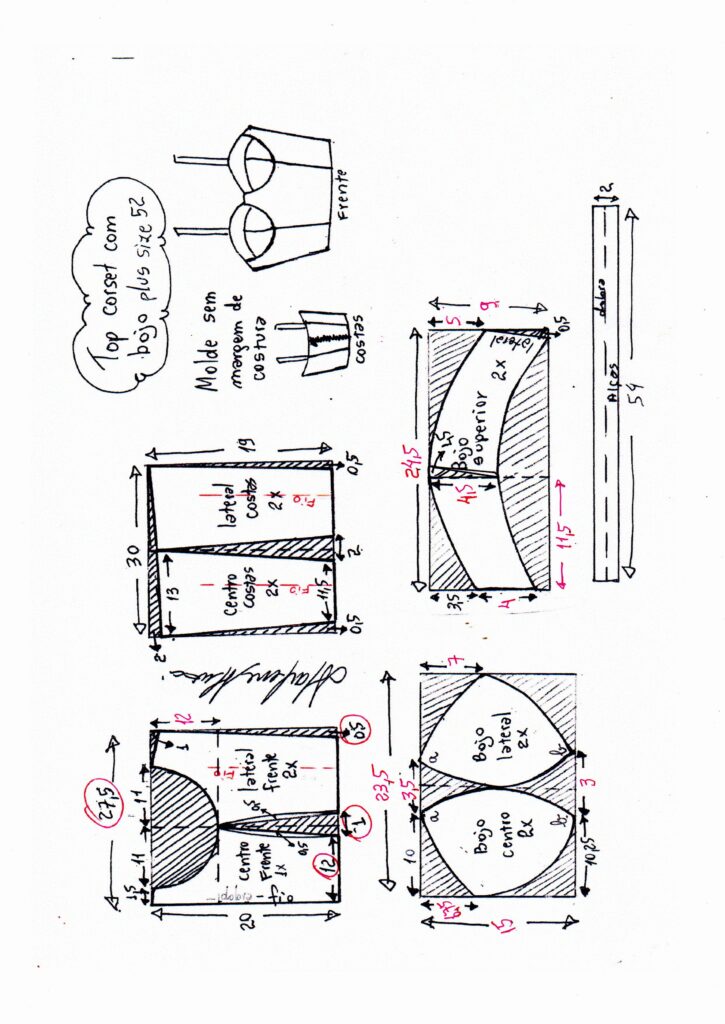 Top corset com
bojo plus size 52
Molde sem
margem de
costura
Frente
costas
30
19
0,5
lateral
costas
2x
Fio
2
13
Centro
costas
2x
Fio
11,5
0,5
2
27,5
12
1
0,5
11
11
1,5
lateral
frente
2x
Fio
0,5
0,5
1
12
Centro
Frente
1x
Fio
20
24,5
5
9
0,5
lateral
2x
Bojo
superior
1,5
4,5
11,5
3,5
4
2
dobra
Alças
54
23,5
7
3,5
10
a
a
Bojo
lateral
2x
b
b
3
Bojo
centro
2x
10,25
15